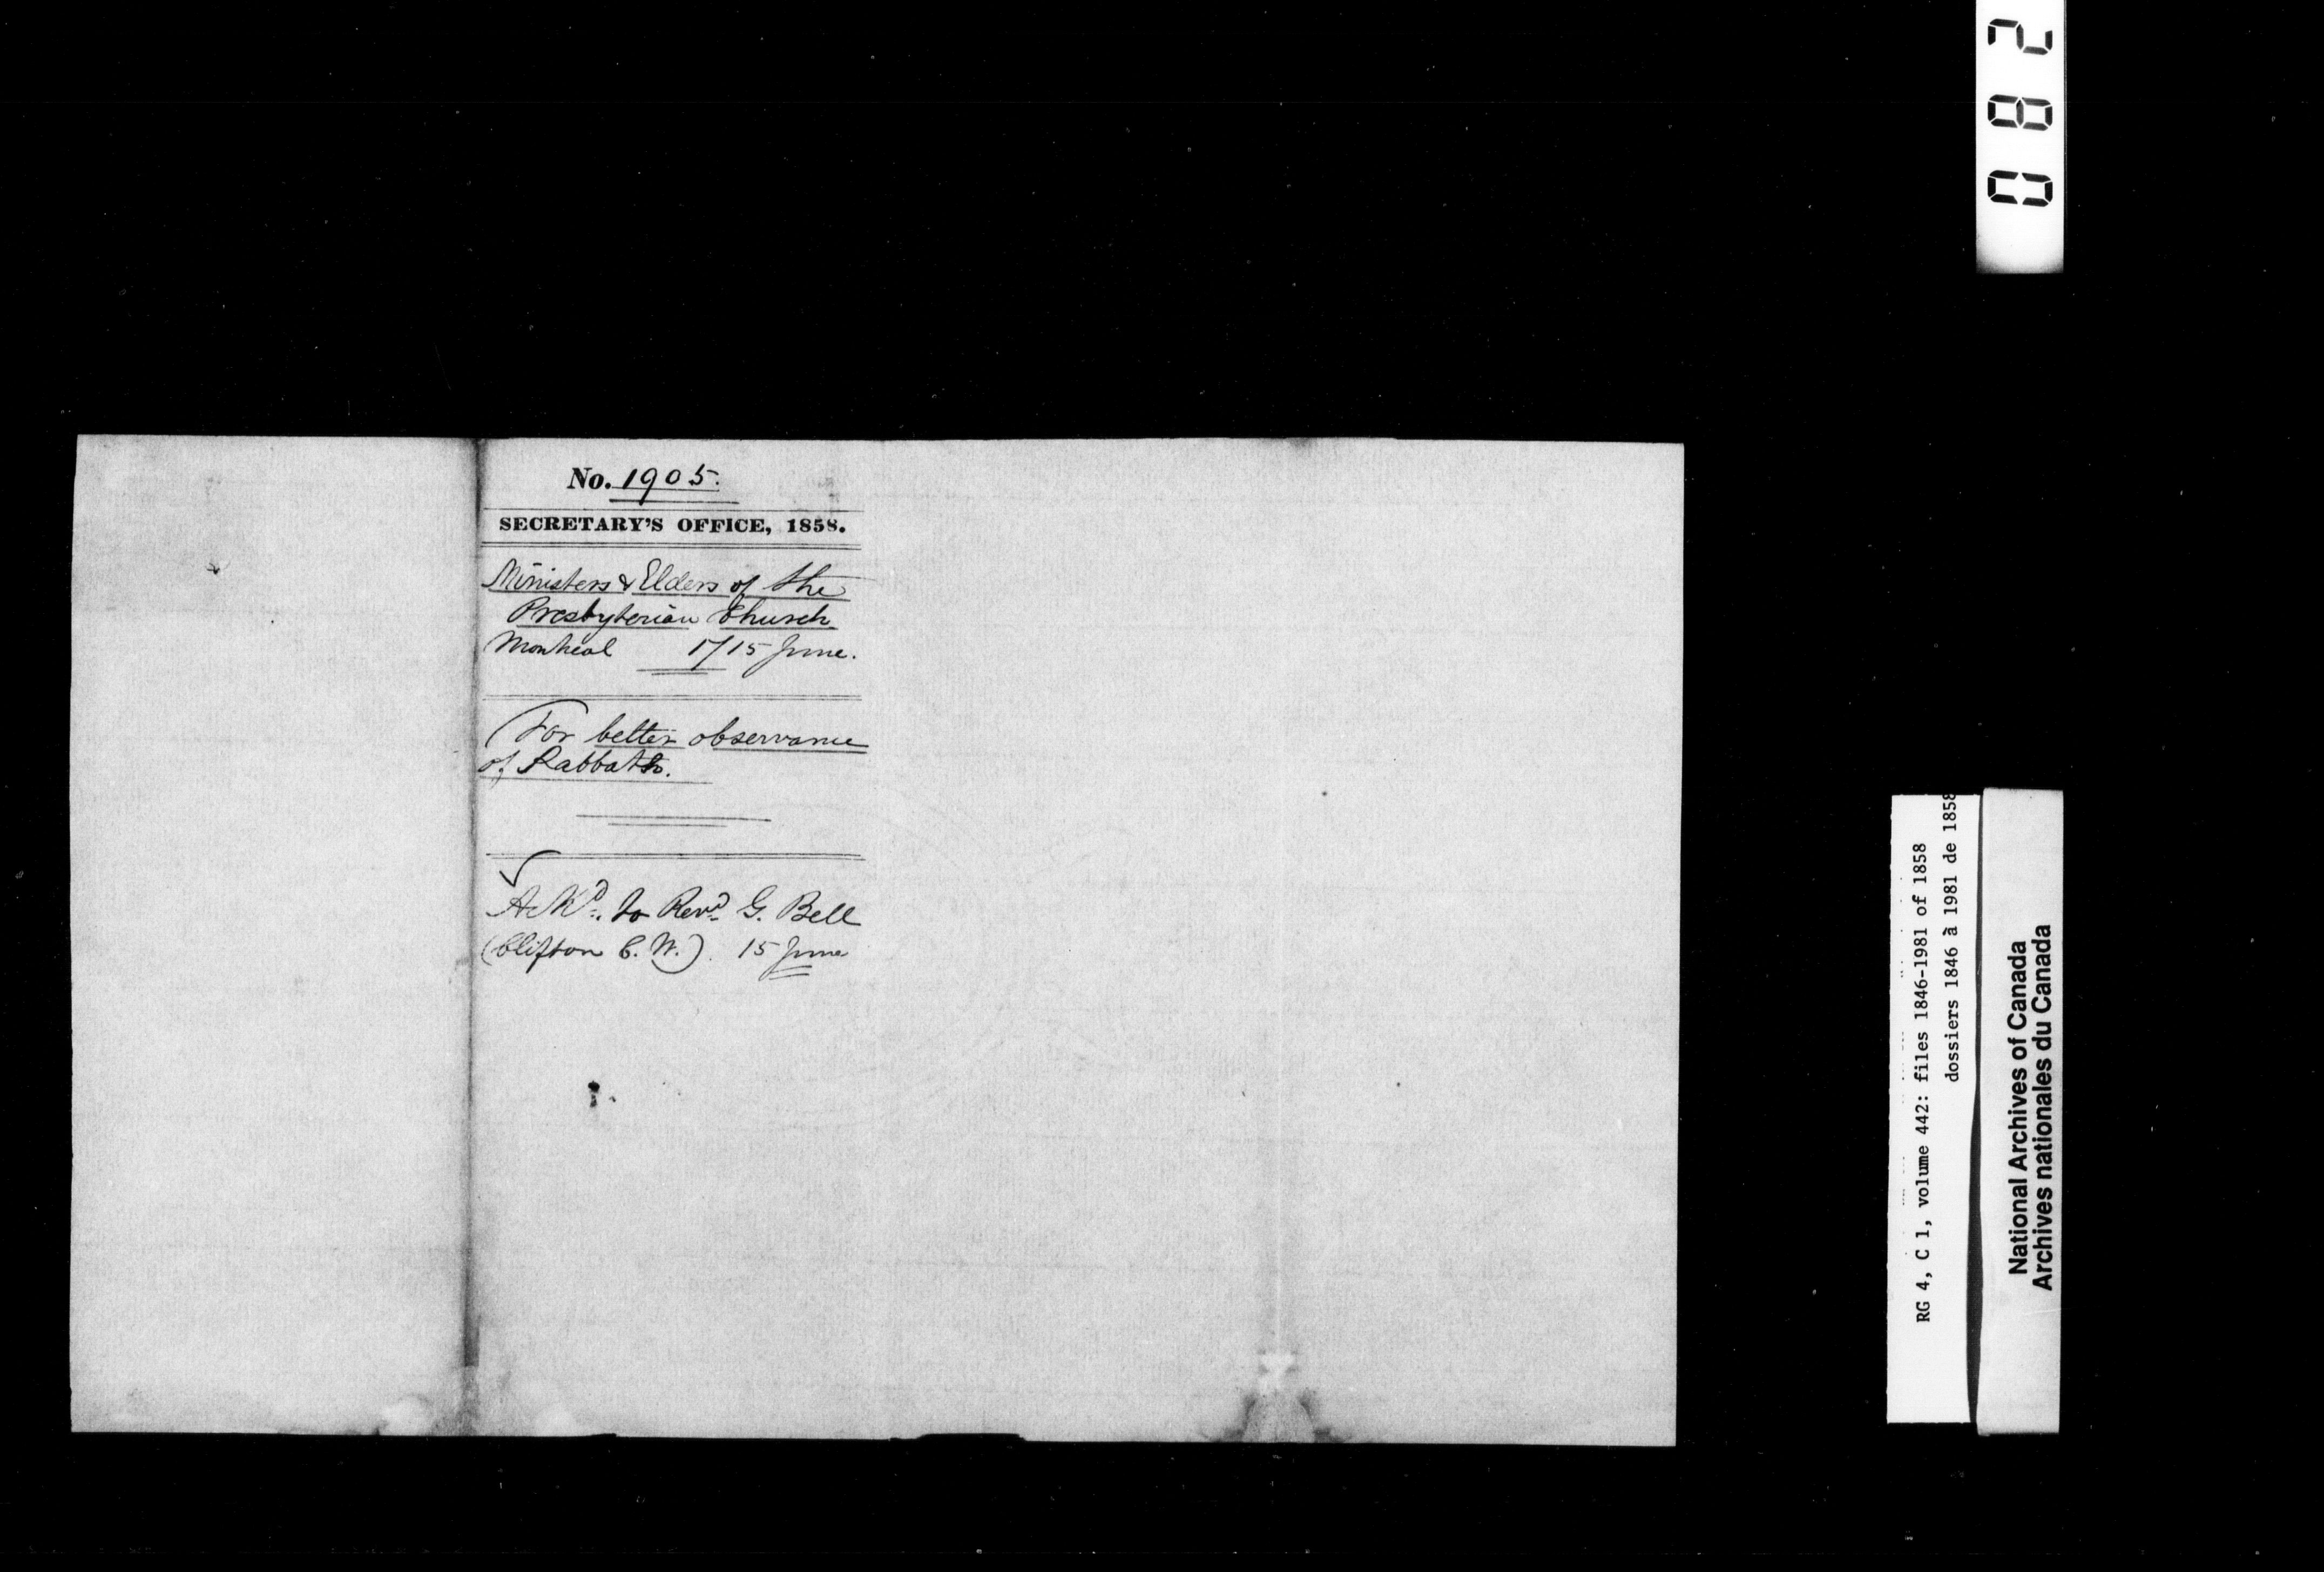 No. 1905.
SECRETARY'S OFFICE, 1858.
Ministers & Elders of the
Presbyterian Church
Montreal 1/15 June.
For better observance
of Sabbath.
Ackd. to Revd. G. Bell
(Clifton C.W.). 15 June
082
RG 4, C 1, volume 442: files 1846-1981 of 1858
dossiers 1846 à 1981 de 1858
National Archives of Canada
Archives nationales du Canada